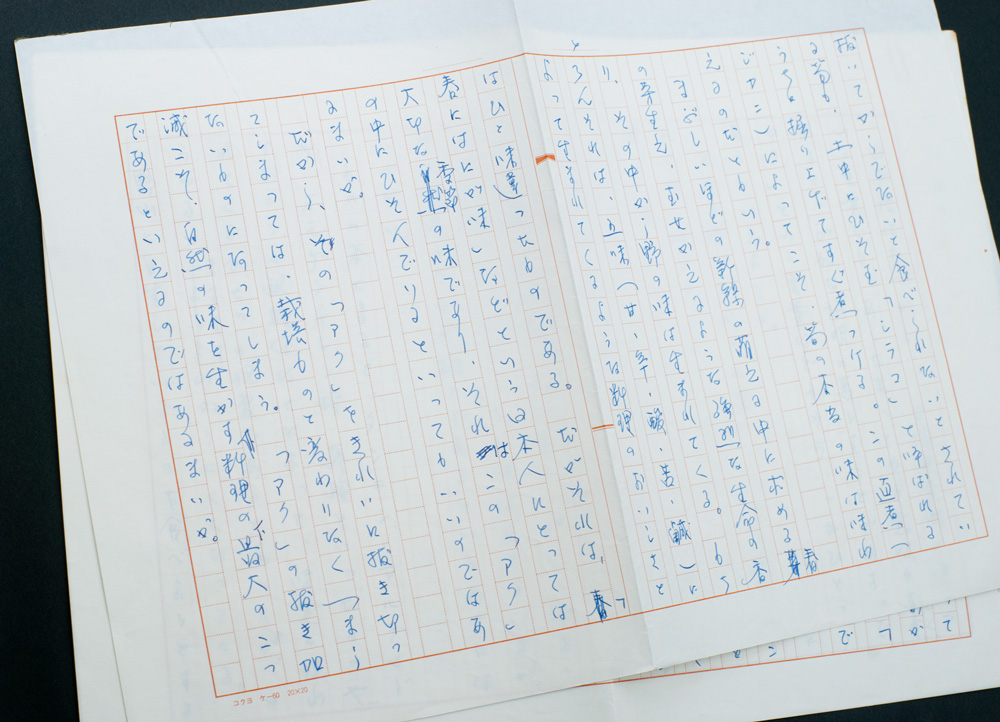 抜いてからでないと食べられないとされてい
る筍も、土中にひそむ「シラコ」と呼ばれる
うちに掘り上げてすぐ煮つける。この直煮(
ジカニ)によってこそ、筍の本当の味は味わ
えるのだともいう。
まぶしいほどの新緑の萌える中に求める春
の芽生え、むせかえるような強烈な生命の香
り、その中から野の味は生まれてくる。もち
ろんそれは、五味(甘、辛、酸、苦、鹹)に
よって生まれてくるような料理のおいしさと
はひと味違ったものである。だがそれは、「
春にはにが味」などという日本人にとっては
大切な季節の味であり、それはこの「アク」
の中にひそんでいるといってもいいのではあ
るまいか。
だから、その「アク」をきれいに抜き切っ
てしまっては、栽培ものと変わりなくつまら
ないものになってしまう。「アク」の抜き加
減こそ、自然の味を生かす料理の最大のこつ
であるといえるのではあるまいか。
コクヨ ケ-60 20×20